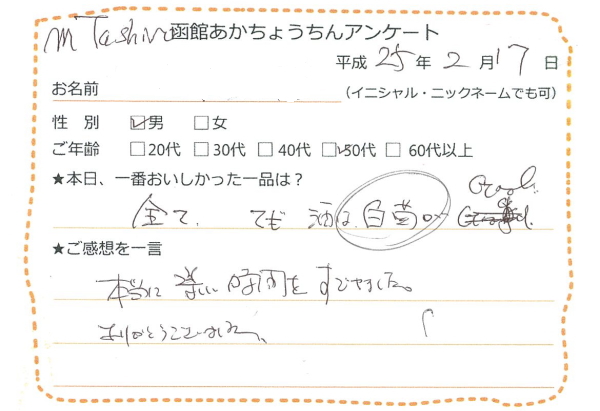 M Tashiro 函館あかちょうちんアンケート
平成 25 年 2 月 17 日
お名前 (イニシャル・ニックネームでも可)
性 別 ☑男 □女
ご年齢 □20代 □30代 □40代 ☑50代 □60代以上
★本日、一番おいしかった一品は？
全て、 ても 酒は 白菊が Good.
★ご感想を一言
本当に 楽しい 時間を すごせました。
ありがとうございました。